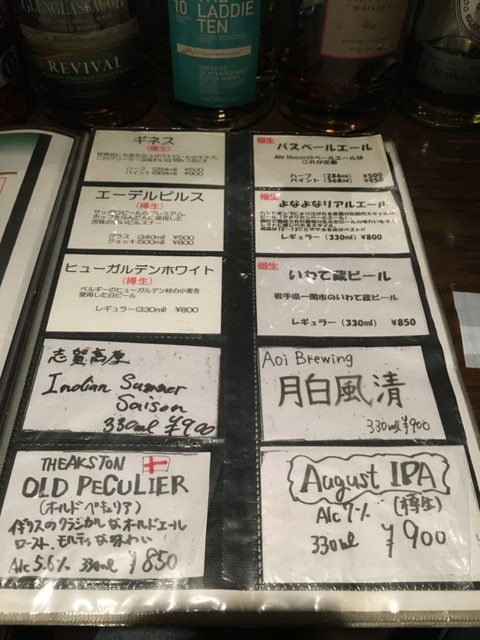 GLENGLASSAUGH
REVIVAL
10
THE
LADDIE
TEN
WHISKEY
Rye
ギネス
(樽生)
ハーフ (284ml) ¥500
パイント (568ml) ¥900
エーデルピルス
(樽生)
サッポロビールのプレミアム
ホップをふんだんに使用した
苦味の強いピルスナー
グラス (340ml) ¥500
ジョッキ(500ml) ¥800
ヒューガルデンホワイト
(樽生)
ベルギーのヒューガルデン村の小麦を
使用した白ビール
レギュラー(330ml) ¥800
志賀高原
Indian Summer
Saison
330ml ¥900
THEAKSTON
OLD PECULIER
(オルド ペキュリア)
イギリスのクラシカルなオールドエール
ロースト、モルティな味わい
Alc 5.6% 330ml ¥850
樽生
バスペールエール
Ale Houseのペールエールは
これが定番
ハーフ (284ml) ¥500
パイント (568ml) ¥950
樽生
よなよなリアルエール
レギュラー (330ml) ¥800
樽生
いわて蔵ビール
岩手県一関市のいわて蔵ビール
レギュラー (330ml) ¥850
Aoi Brewing
月白風清
330ml ¥900
August IPA
Alc 7% (樽生)
330ml ¥900